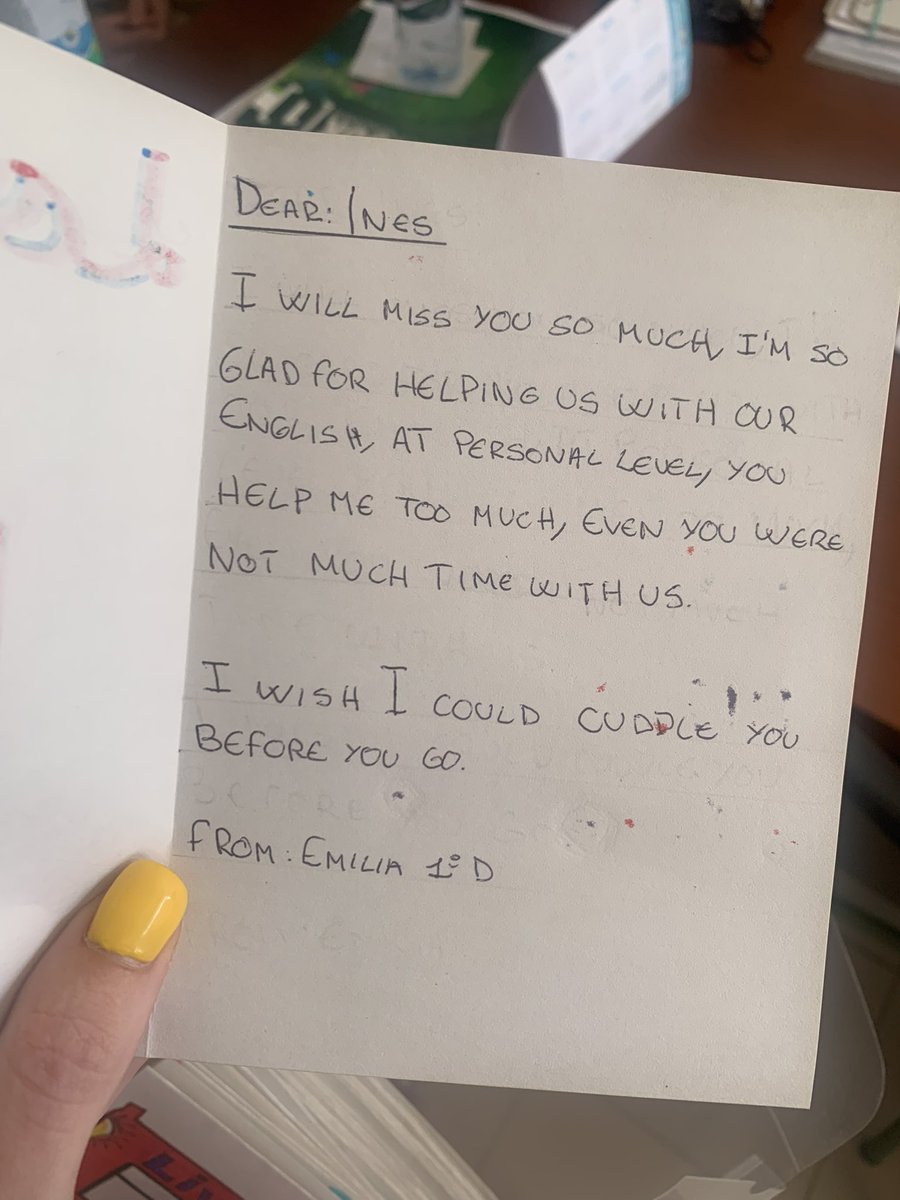 DEAR: INES
I WILL MISS YOU SO MUCH, I'M SO
GLAD FOR HELPING US WITH OUR
ENGLISH, AT PERSONAL LEVEL, YOU
HELP ME TOO MUCH, EVEN YOU WERE
NOT MUCH TIME WITH US.
I WISH I COULD CUDDLE YOU
BEFORE YOU GO.
FROM: EMILIA 1º D